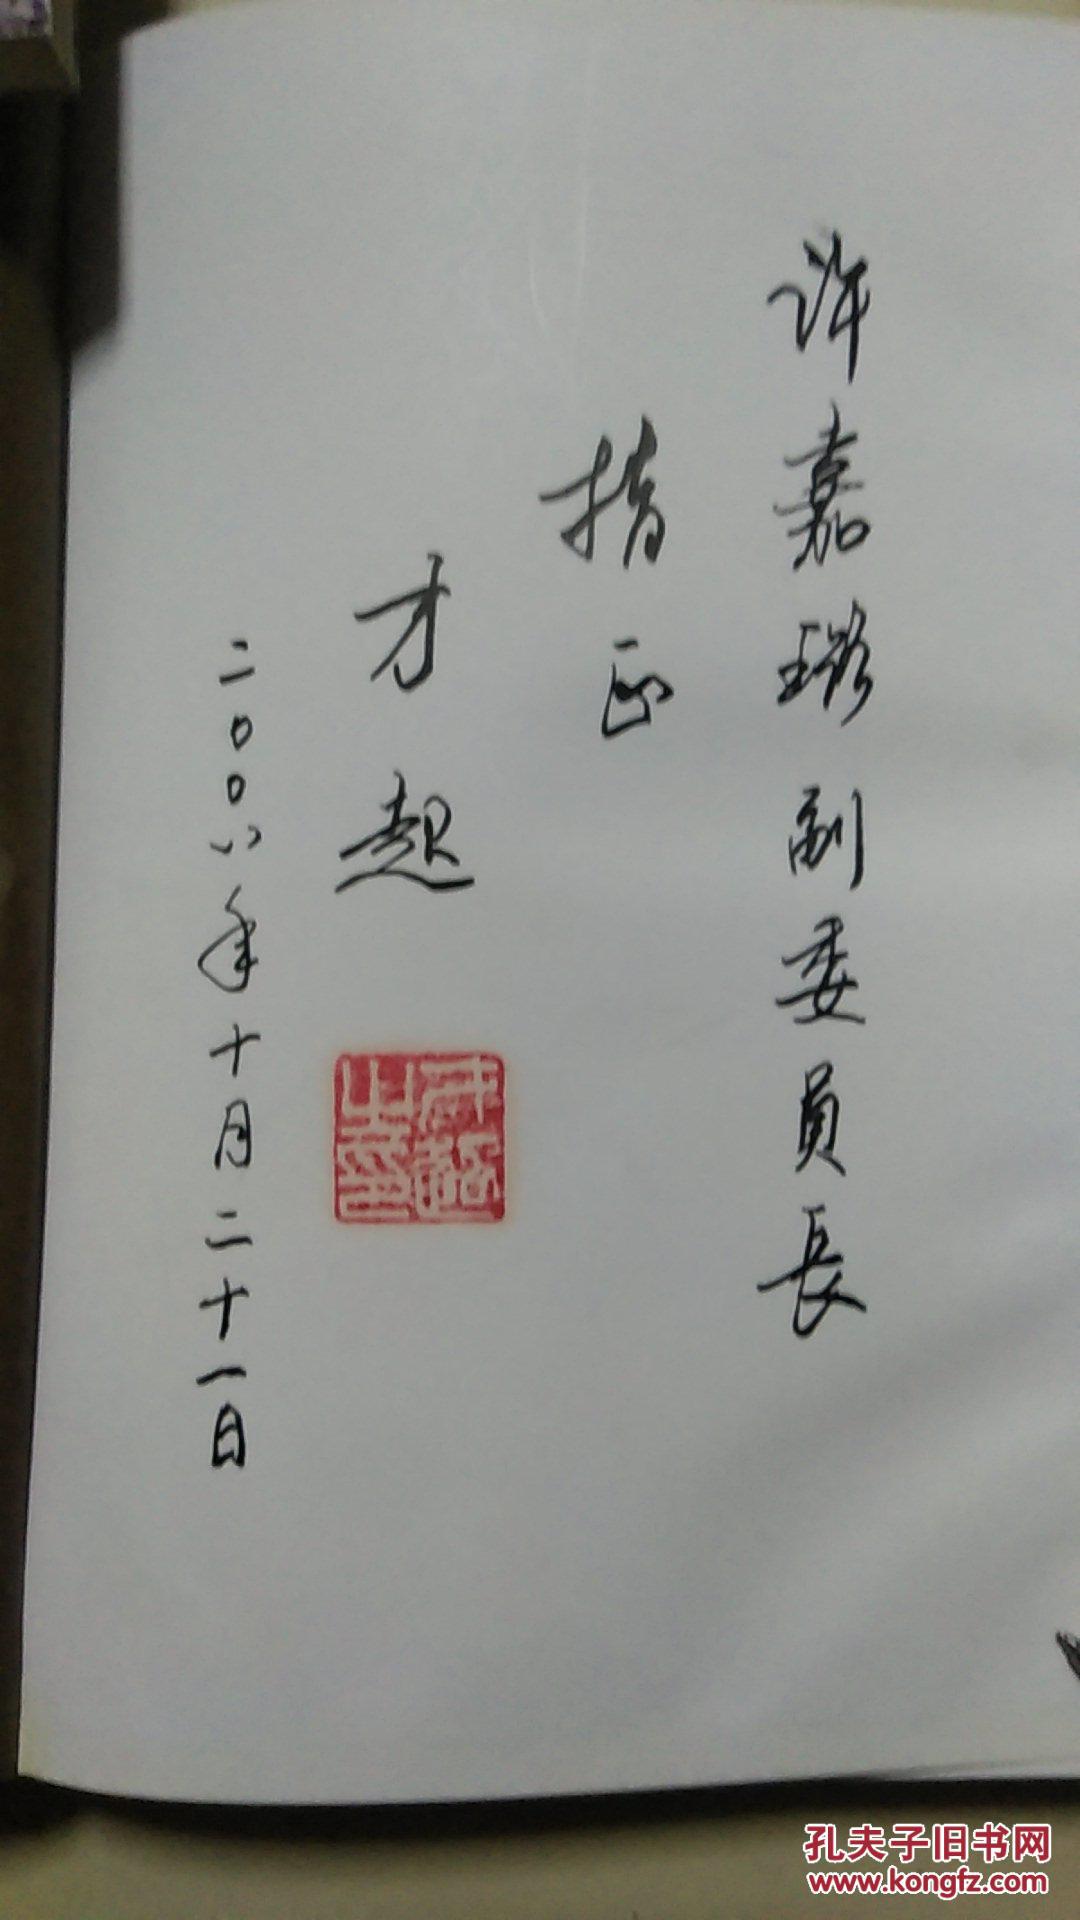 许嘉璐副委員長
指正
才超
二〇〇八年十月二十一日
孔夫子旧书网
www.kongfz.com